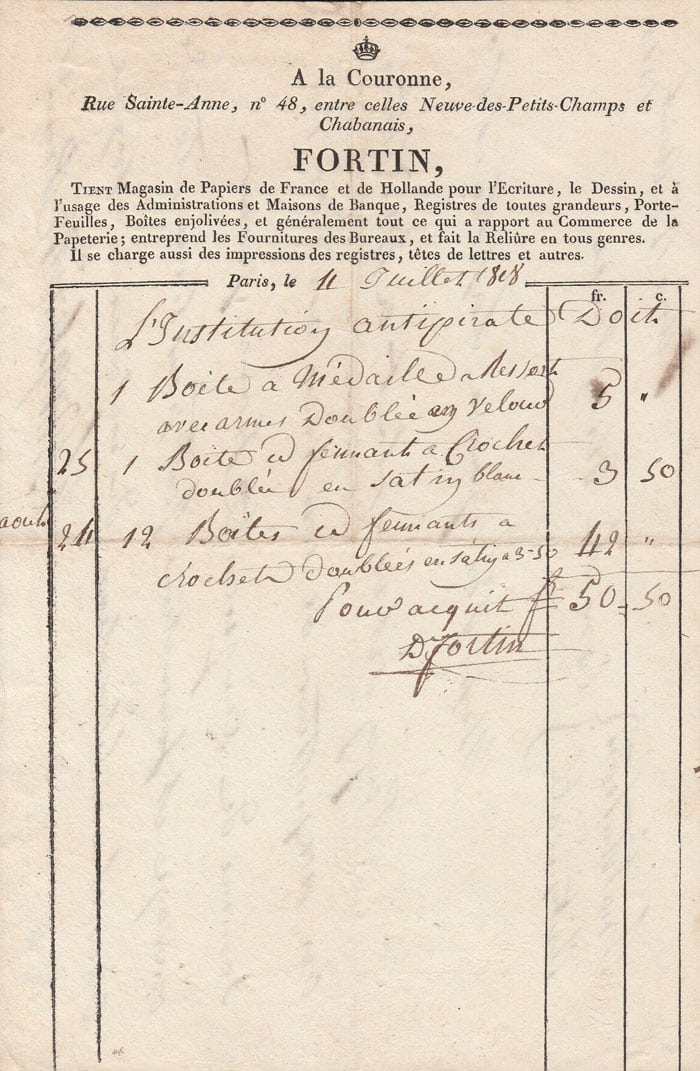 A la Couronne,
Rue Sainte-Anne, n° 48, entre celles Neuve-des-Petits-Champs et
Chabanais,
FORTIN,
TIENT Magasin de Papiers de France et de Hollande pour l'Ecriture, le Dessin, et à
l'usage des Administrations et Maisons de Banque, Registres de toutes grandeurs, Porte-
Feuilles, Boîtes enjolivées, et généralement tout ce qui a rapport au Commerce de la
Papeterie; entreprend les Fournitures des Bureaux, et fait la Reliûre en tous genres.
Il se charge aussi des impressions des registres, têtes de lettres et autres.
Paris, le 4 Juillet 1818
fr. c.
L'Institution antipirate Doit
1 Boite a Médaille a Ressort
avec armes Doublée en velour 5 "
25 1 Boite id fermants a Crochet
doublée en satin blanc - 3 50
aout 24 12 Boîtes id fermants a
Crochets doublées en satin a 3-50 42 "
Pour acquit f 50 - 50
Dfortin